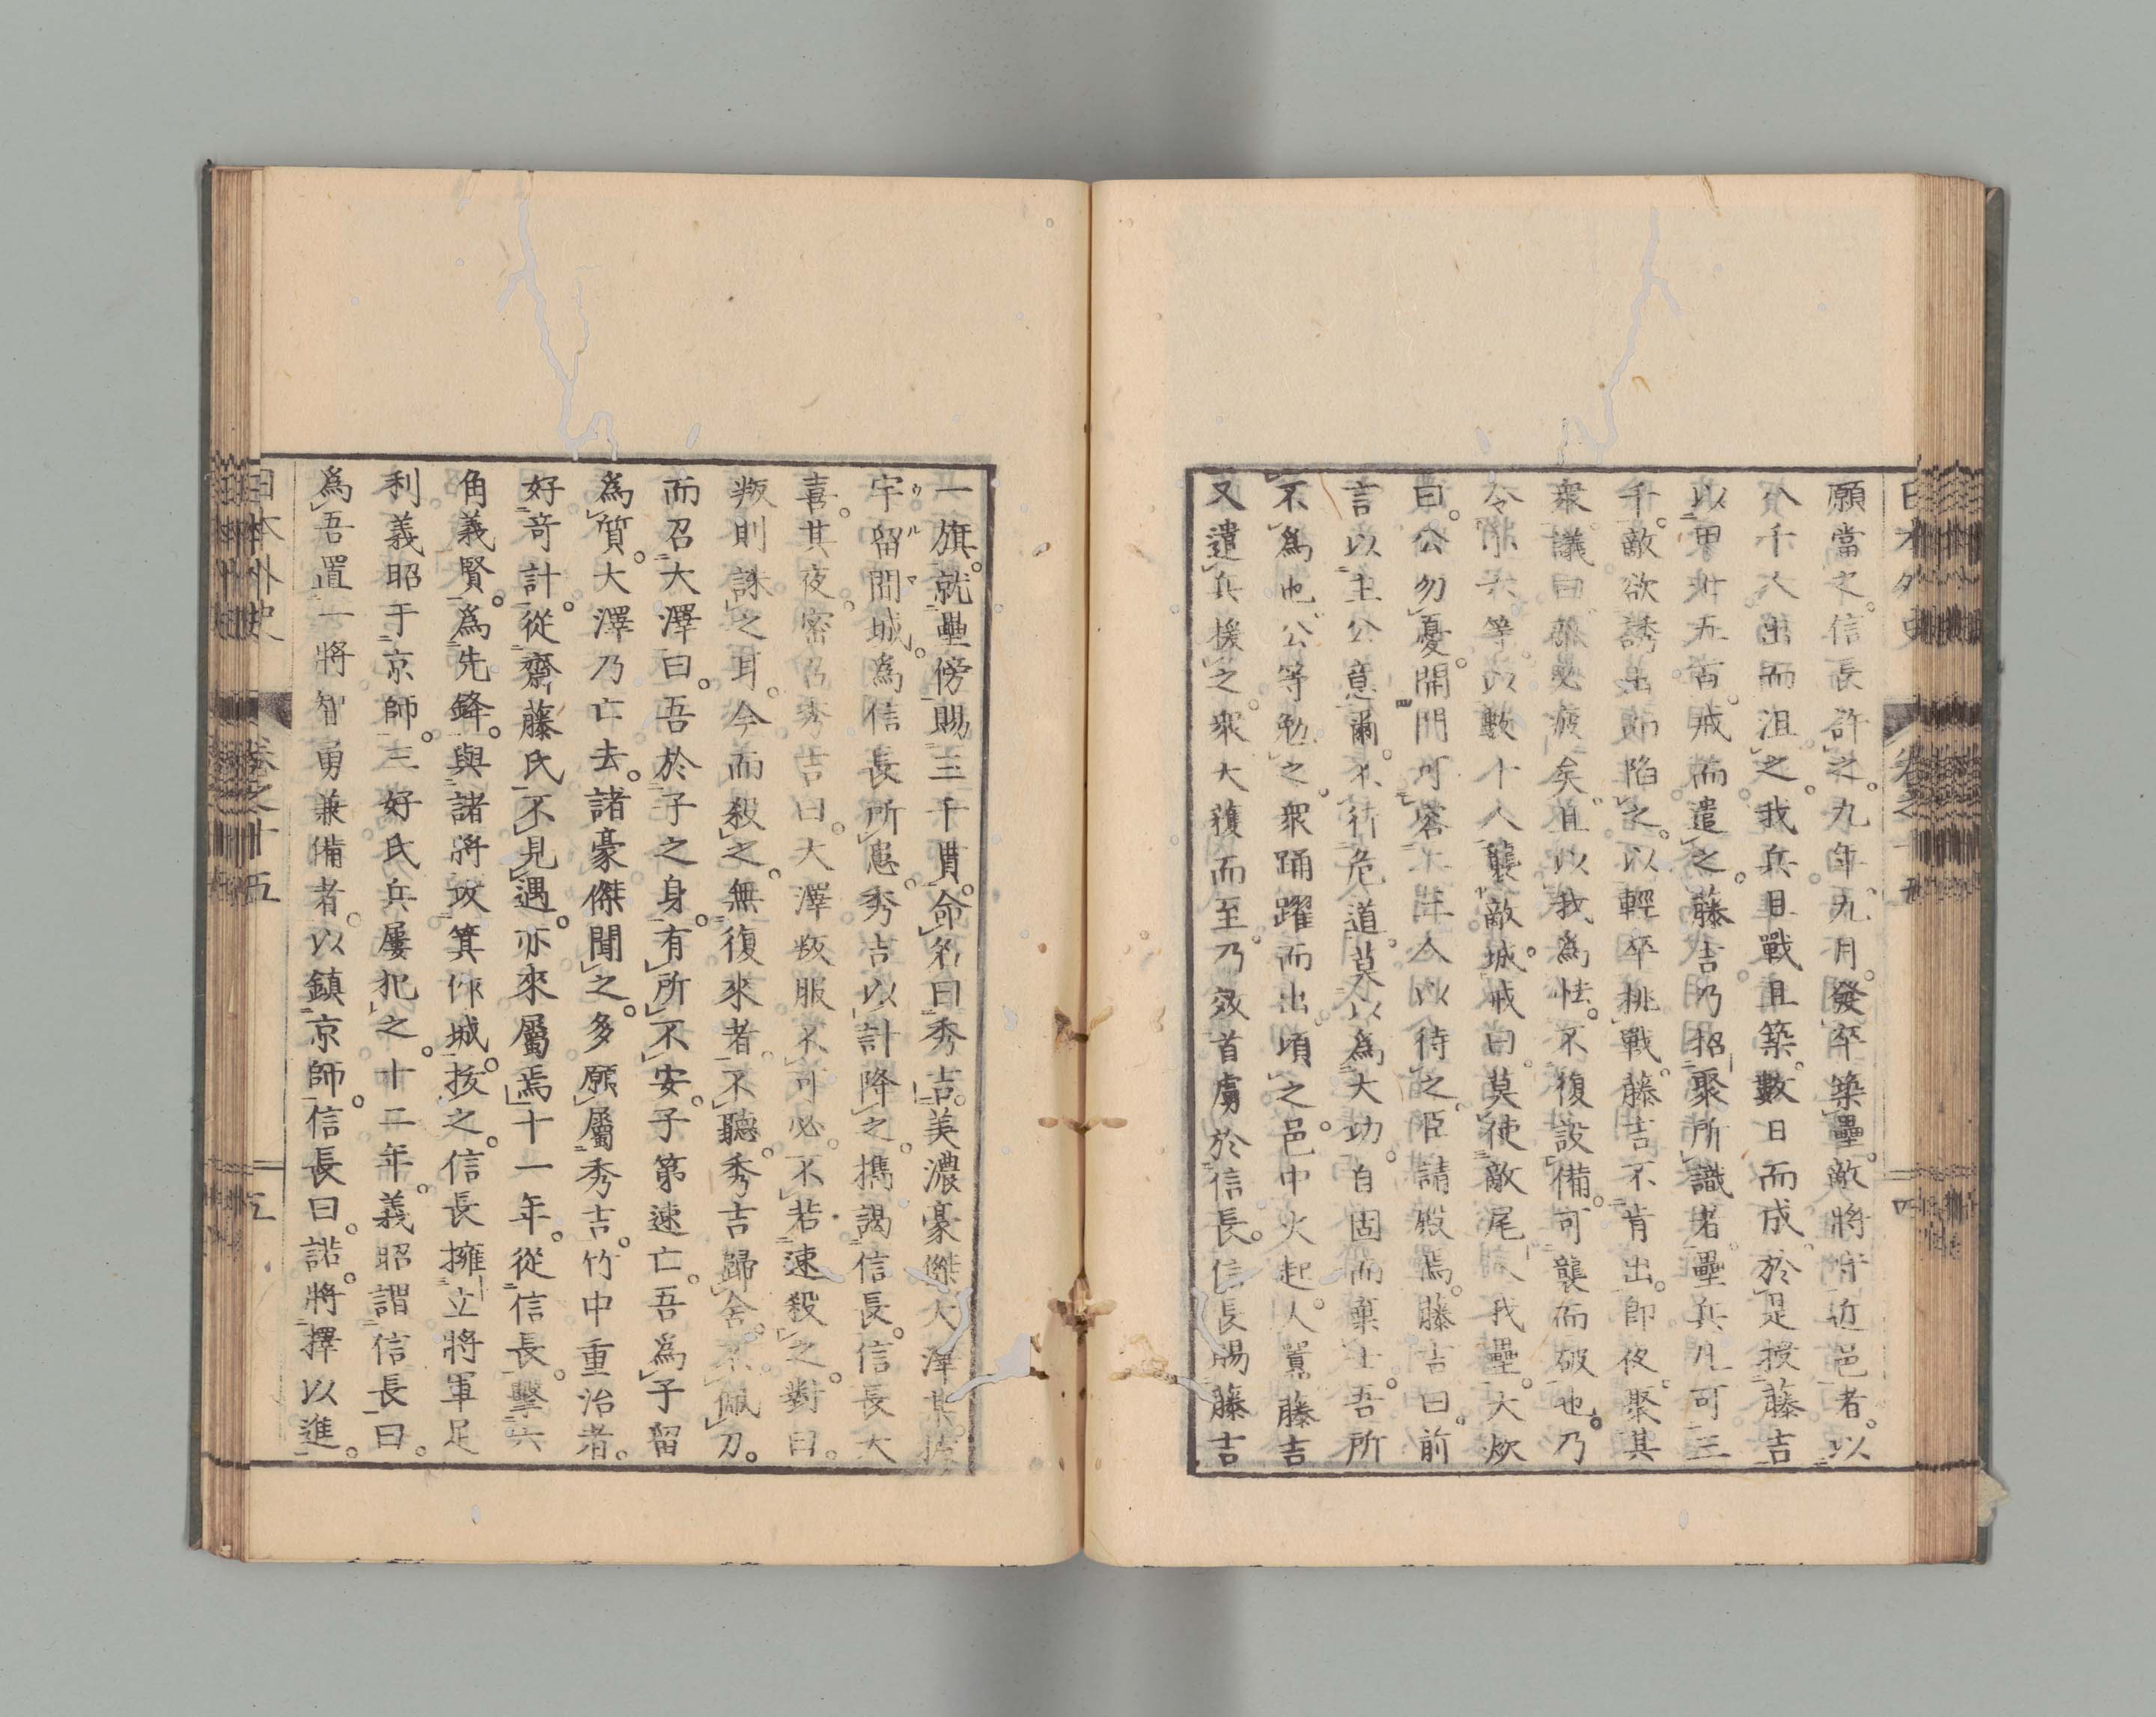 日本外史 卷之十五 四
願當之。信長許之。九年。九月。發卒築壘。敵將守近邑者。以
八千人出而沮之。我兵且戰且築。數日而成。於是授藤吉
以甲卅五百。戒而遣之。藤吉乃招聚所識者。壘兵凡可三
千。敵欲誘出而陷之。以輕卒挑戰。藤吉不肯出。即夜聚其
衆議曰。敵必疲矣。且以我爲怯。不復設備。可襲而破也。乃
令 六等。以數十人襲敵城。戒曰。莫使敵尾入我壘。大炊
曰。公勿憂。開門可容 年入以待之。臣請殿焉。藤吉曰。前
言以主公意爾。不行危道。莫以爲大功。自固而棄士。吾所
不爲也。公等勉之。衆踊躍而出。頃之。邑中火起。人質藤吉
又遣兵援之。衆大獲而至。乃效首虜於信長。信長賜藤吉
一旗。就壘傍賜三千貫。命名曰秀吉。美濃豪傑大澤某據
宇留間城。爲信長所患。秀吉以計降之。攜謁信長。信長大
喜。其夜密召秀吉曰。大澤叛服不可必。不若速殺之。對曰。
叛則誅之耳。今而殺之。無復來者。不聽。秀吉歸舍。不佩刀。
而召大澤曰。吾於子之身。有所不安。子第速亡。吾爲子留
爲質。大澤乃亡去。諸豪傑聞之。多願屬秀吉。竹中重治者。
好奇計。從齋藤氏。不見遇。亦來屬焉。十一年。從信長。擊六
角義賢。爲先鋒。與諸將攻箕作城。拔之。信長擁立將軍足
利義昭于京師。三好氏兵屢犯之。十二年。義昭謂信長曰。
爲吾置一將智勇兼備者。以鎮京師。信長曰。諾。將擇以進。
日本外史 卷之十五 五